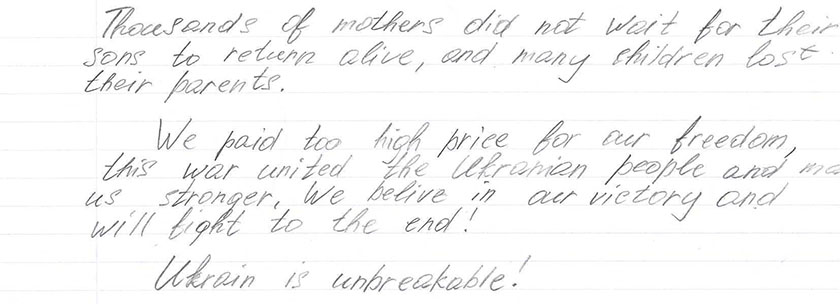 Thousands of mothers did not wait for their
sons to return alive, and many children lost
their parents.
We paid too high price for our freedom,
this war united the Ukranian people and ma
us stronger. We belive in our victory and
will fight to the end!
Ukrain is unbreakable!